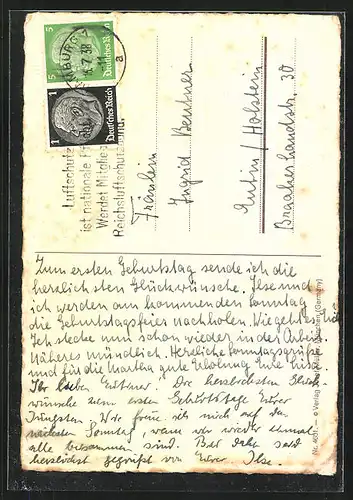 5
Deutsches Reich
1
Deutsches Reich
Luftschutz
ist nationale
Werdet Mitglied
Reichsluftschutzbund
Fräulein
Ingrid Bentner
Eutin / Holstein
Braaker Landstr. 30
Zum ersten Geburtstag sende ich die
herzlichsten Glückwünsche. Ilse und
ich werden am kommenden Sonntag
die Geburtstagsfeier nachholen. Wie geht es
Ich stecke nun schon wieder in der Arbeit.
Näheres mündlich. Herzliche Sonntagsgrüße
und für die Martha gute Erholung Euer
Ihr lieben Eutiner! Die herzlichsten Glück-
wünsche zum ersten Geburtstage Eurer
Jüngsten. Wir freuen uns auf den
nächsten Sonntag, wenn wir wieder einmal
alle beisammen sind. Bis dahin seid
herzlichst gegrüßt von Eurer Ilse.